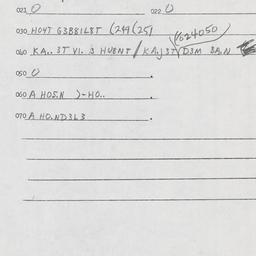 021 0 022 0
030 HO4T G3BBIL8T (249(251
(624050)
040 KA.. 3T VI. 3 HUENT / KAJ3T D3M BA.N
050 0 .
060 A HOEN )-HO.. .
070 A HO.ND3L3 .